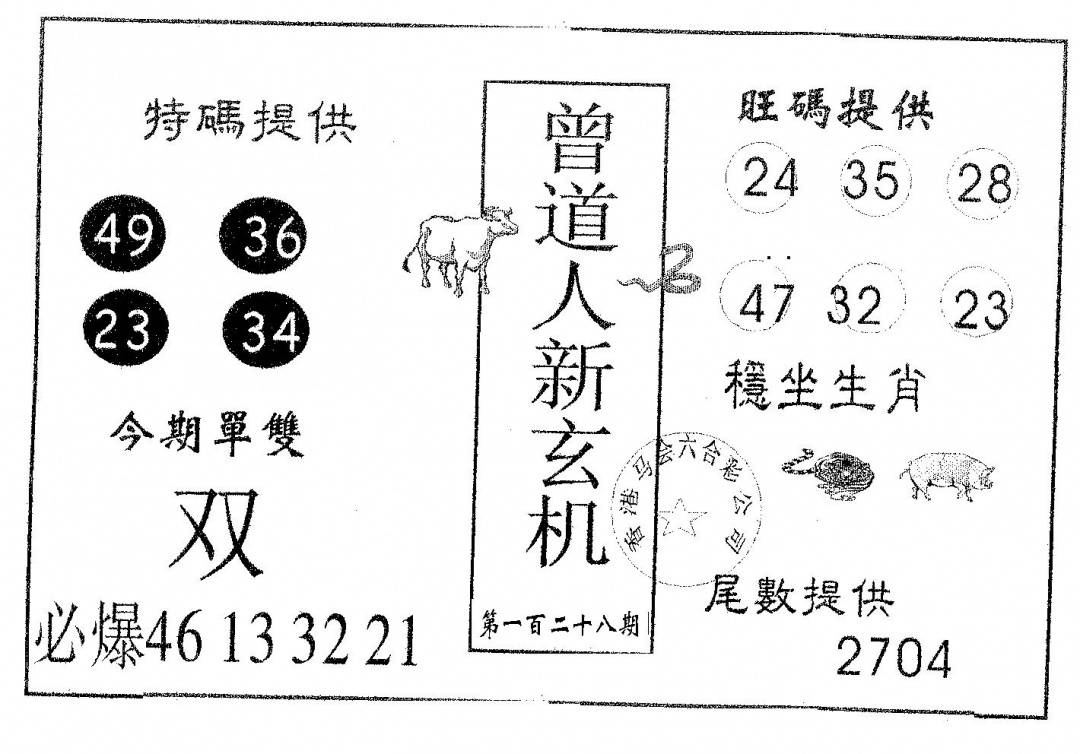 特碼提供
49 36
23 34
今期單雙
双
必爆46 13 32 21
曾道人新玄机
第一百二十八期
旺碼提供
24 35 28
47 32 23
穩坐生肖
香港马会六合彩公司
尾數提供
2704